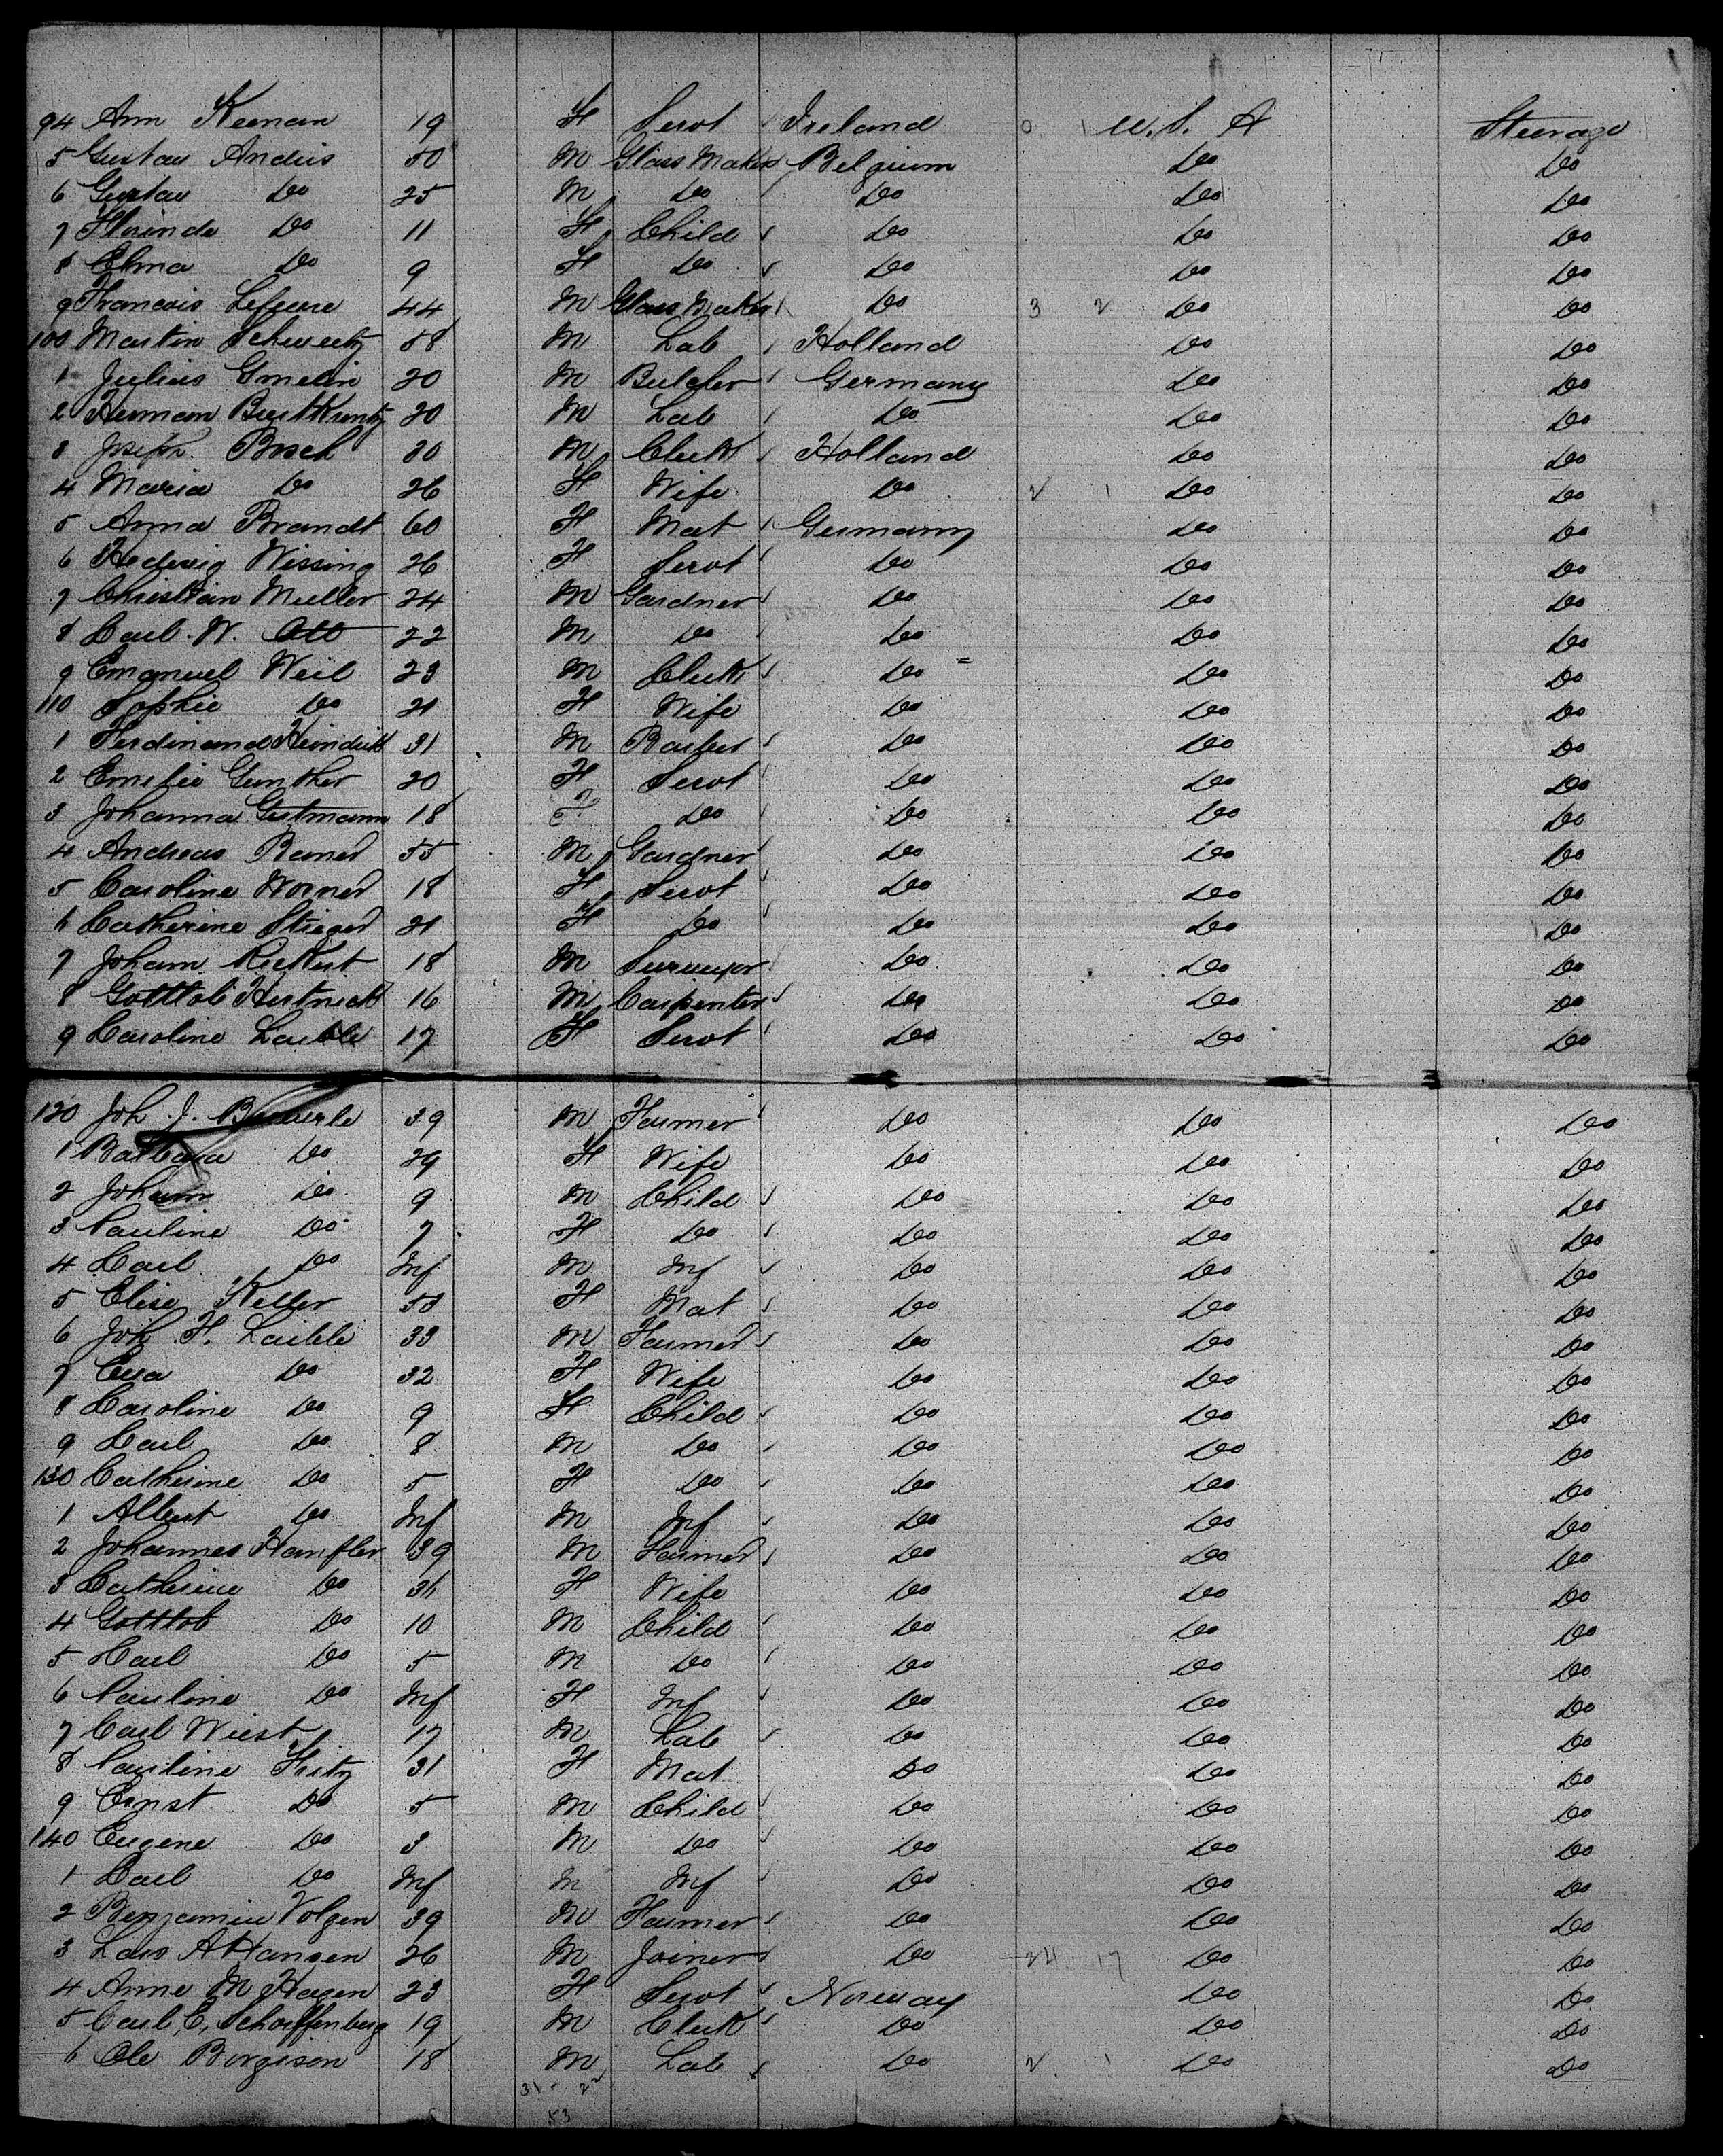 94 Ann Keenan 19 F Servt Ireland 0 1 U. S. A Steerage
5 Gustav Andris 50 M Glass Maker Belgium Do Do
6 Gustav Do 25 M Do Do Do Do
7 Florinde Do 11 F Child Do Do Do
8 Elma Do 9 F Do Do Do Do
9 Francois Lefevre 44 M Glass Maker Do 3 2 Do Do
100 Martin Schweetz 58 M Lab Holland Do Do
1 Julius Gmelin 20 M Butcher Germany Do Do
2 Herman 20 M Lab Do Do Do
3 Joseph Bosch 30 M Clerk Holland Do Do
4 Maria Do 26 F Wife Do 2 1 Do Do
5 Anna Brandt 60 F Mat Germany Do Do
6 Hedwig Wissing 26 F Servt Do Do Do
7 Christian Muller 24 M Gardner Do Do Do
8 Carl W. Ott 22 M Do Do Do Do
9 Emanuel Weil 23 M Clerk Do Do Do
110 Sophie Do 21 F Wife Do Do Do
1 Ferdinand 31 M Barber Do Do Do
2 Emilie Gunther 20 F Servt Do Do Do
3 Johanna Gutmann 18 Do Do Do Do
4 Andreas 55 M Gardner Do Do Do
5 Caroline Worner 18 F Servt Do Do Do
6 Catherine Stieger 21 F Do Do Do Do
7 Joham Rickert 18 M Surveyor Do Do Do
8 Gottlob 16 M Carpenter Do Do Do
9 Caroline Laible 17 F Servt Do Do Do
120 Joh. J. Bauerle 39 M Farmer Do Do Do
1 Barbara Do 29 F Wife Do Do Do
2 Joham Do 9 M Child Do Do Do
3 Pauline Do 7 F Do Do Do Do
4 Carl Do Inf M Inf Do Do Do
5 Elise Keller 53 F Mat Do Do Do
6 Joh. F. Laible 33 M Farmer Do Do Do
7 Eva Do 32 F Wife Do Do Do
8 Caroline Do 9 F Child Do Do Do
9 Carl Do 8 M Do Do Do Do
130 Catherine Do 5 F Do Do Do Do
1 Albert Do Inf M Inf Do Do Do
2 Johannes Hanfler 39 M Farmer Do Do Do
3 Catherine Do 31 F Wife Do Do Do
4 Gottlob Do 10 M Child Do Do Do
5 Carl Do 5 M Do Do Do Do
6 Pauline Do Inf F Inf Do Do Do
7 Carl Wiest 17 M Lab Do Do Do
8 Pauline Fritz 31 F Mat Do Do Do
9 Ernst Do 5 M Child Do Do Do
140 Eugene Do 3 M Do Do Do Do
1 Carl Do Inf M Inf Do Do Do
2 Benjamin Volzen 39 M Farmer Do Do Do
3 Lars A Hansen 26 M Joiner Do 24 17 Do Do
4 Anne M Hagen 23 F Servt Norway Do Do
5 Carl E, Schoiffenberg 19 M Clerk Do Do Do
6 Ole Borgison 18 M Lab Do 2 1 Do Do
31 22
53